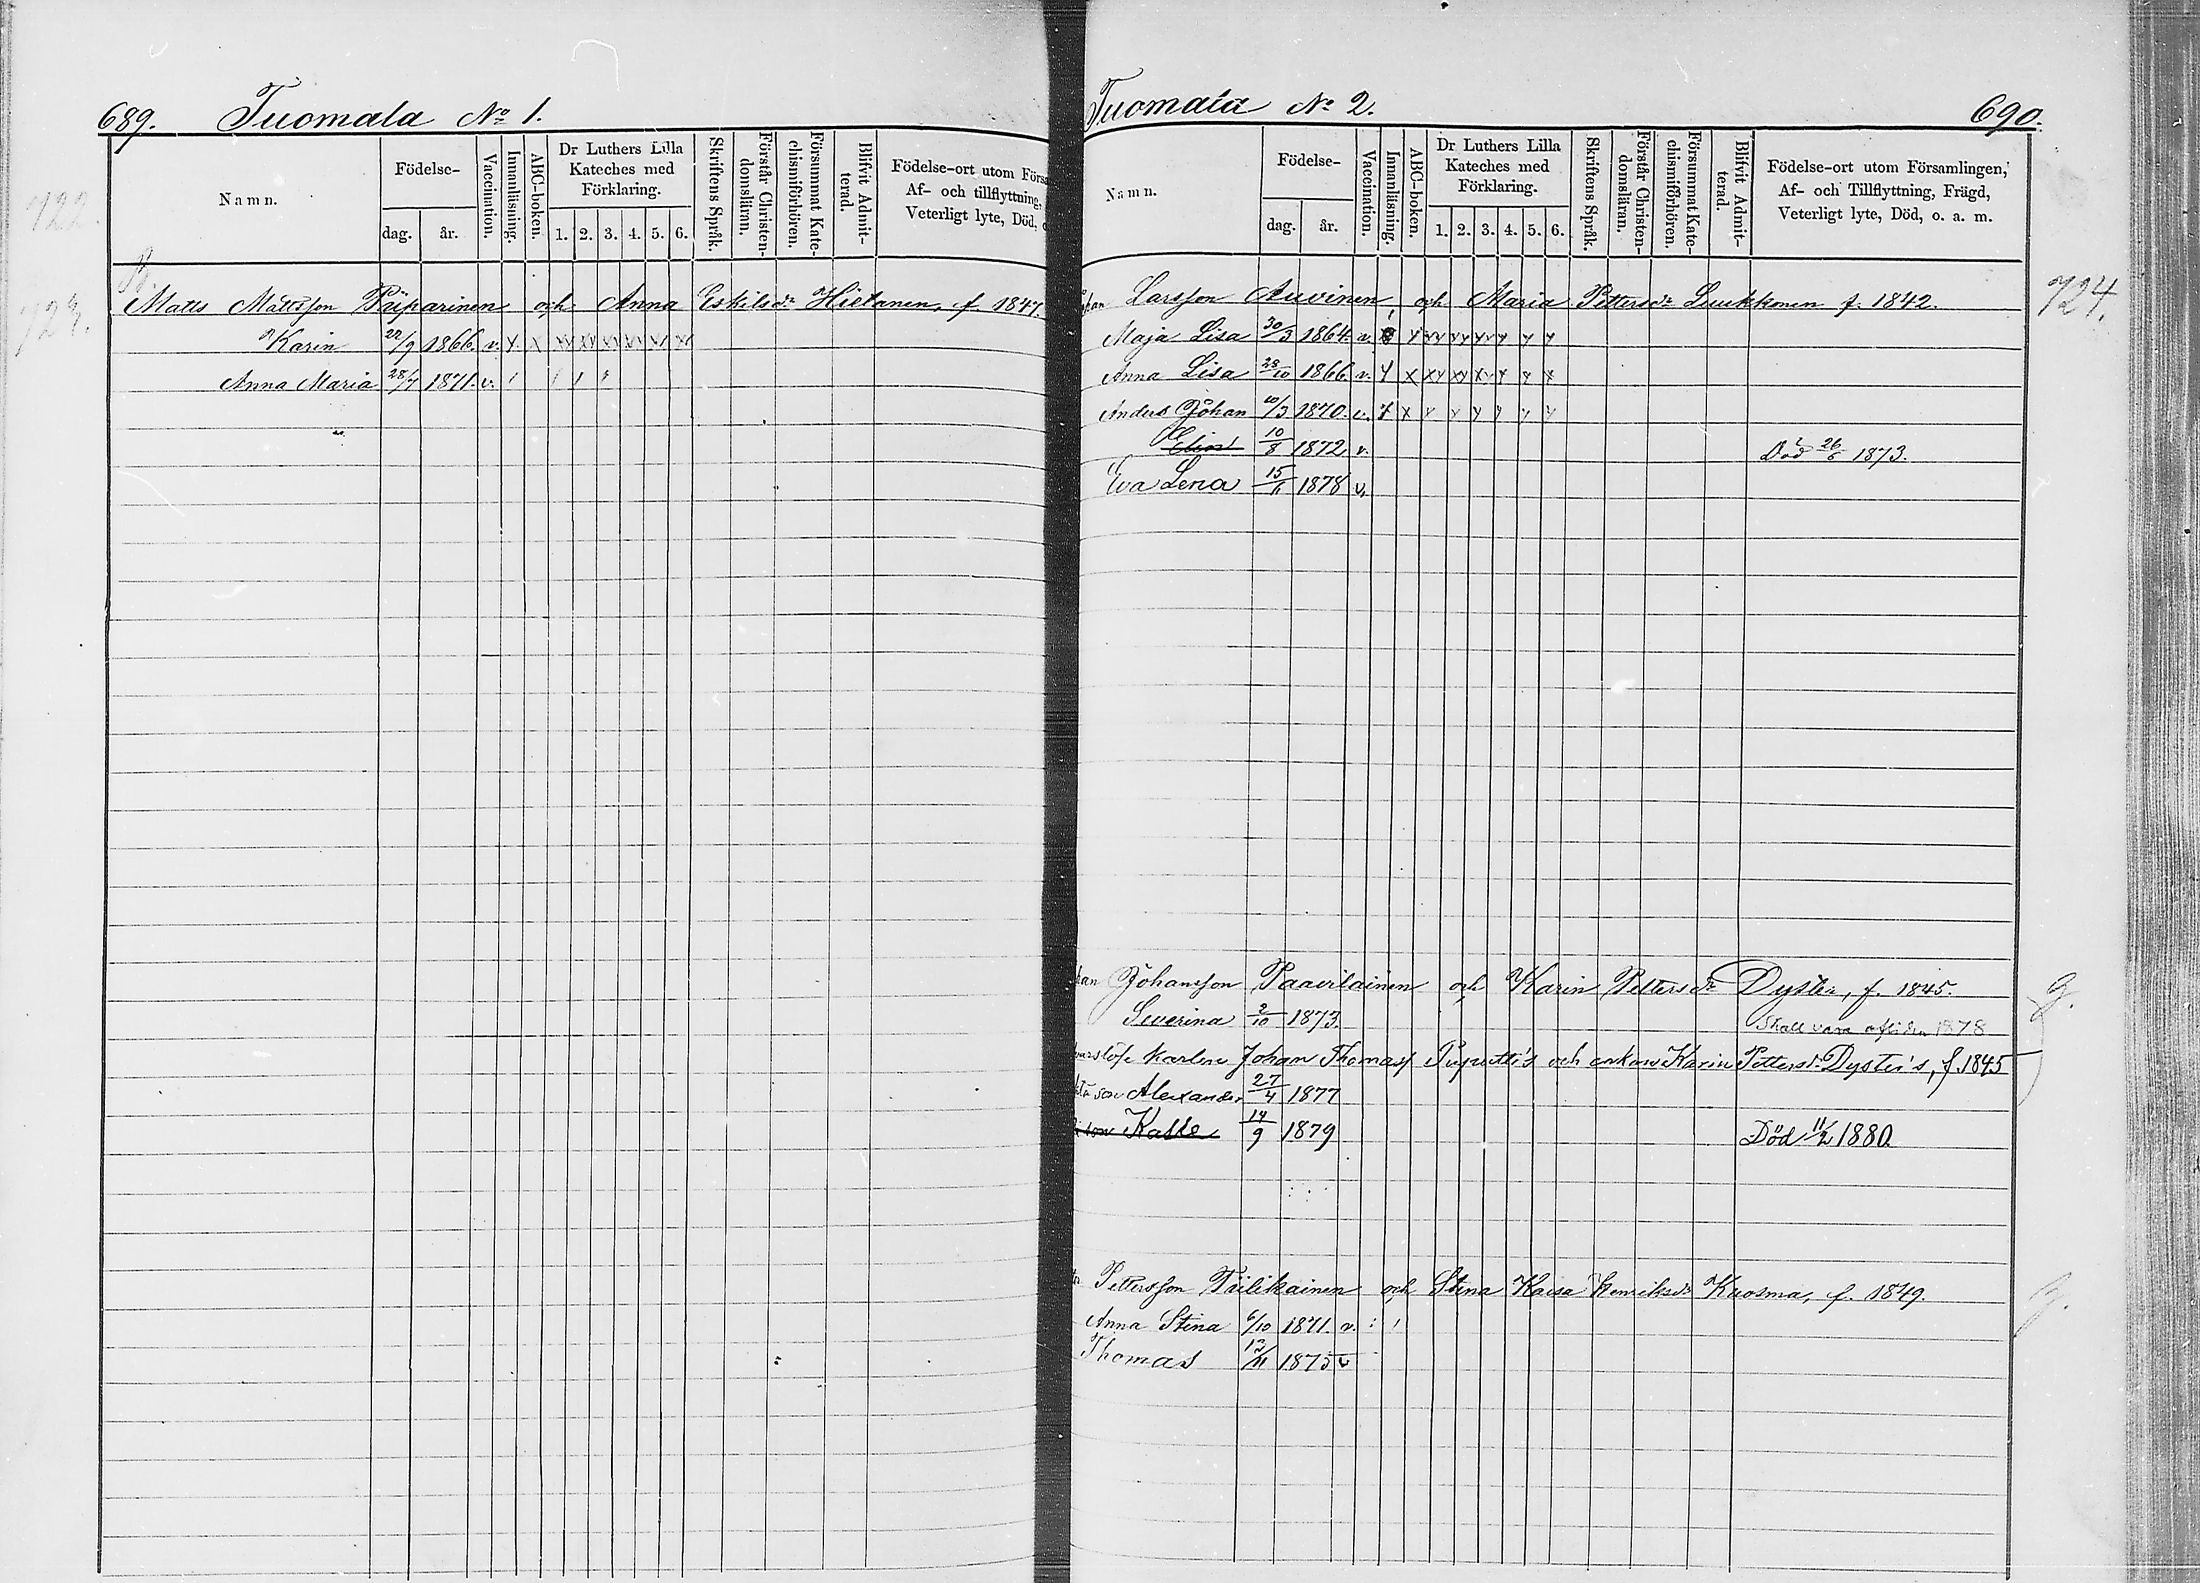 689. Tuomala No 1.
Namn. Födelse- dag. år. Vaccination. Innanläsning. ABC-boken. Dr Luthers Lilla Kateches med Förklaring. 1. 2. 3. 4. 5. 6. Skriftens Språk. Förstår Christendomsläran. Försummat Katechismiförhören. Blifvit Admitterad. Födelse-ort utom Förs Af- och tillflyttning, Veterligt lyte, Död,
722.
723.
Matts Mattsson Piiparinen och Anna Eskilsdr Hietanen, f. 1847.
Karin 22/9 1866. v.
Anna Maria 28/7 1871. v.
Tuomala No 2. 690.
Namn. Födelse- dag. år. Vaccination. Innanläsning. ABC-boken. Dr Luthers Lilla Kateches med Förklaring. 1. 2. 3. 4. 5. 6. Skriftens Språk. Förstår Christendomsläran. Försummat Katechismiförhören. Blifvit Admitterad. Födelse-ort utom Församlingen, Af- och Tillflyttning, Frägd, Veterligt lyte, Död, o. a. m.
724.
Larsson Auvinen, och Maria Pettersdr Luukkonen f. 1842.
Maja Lisa 30/3 1864. v.
Anna Lisa 28/10 1866. v.
Anders Johan 10/3 1870. v.
Elias 10/8 1872 v. Död 26/6 1873.
Eva Lena 15/11 1878 v.
Johansson Paavilainen och Karin Pettersdr Dyster, f. 1845. g.
Severina 2/10 1873. Skall vara afliden 1878
karlen Johan Thomass Puputti's och enkans Karin Pettersdr Dyster's, f. 1845
son Alexander 27/4 1877
son Kalle 14/9 1879 Död 11/2 1880.
Pettersson Täilikainen och Stina Kaisa Henriksdr Kuosma, f. 1849. g.
Anna Stina 6/10 1871. v.
Thomas 12/11 1875 v